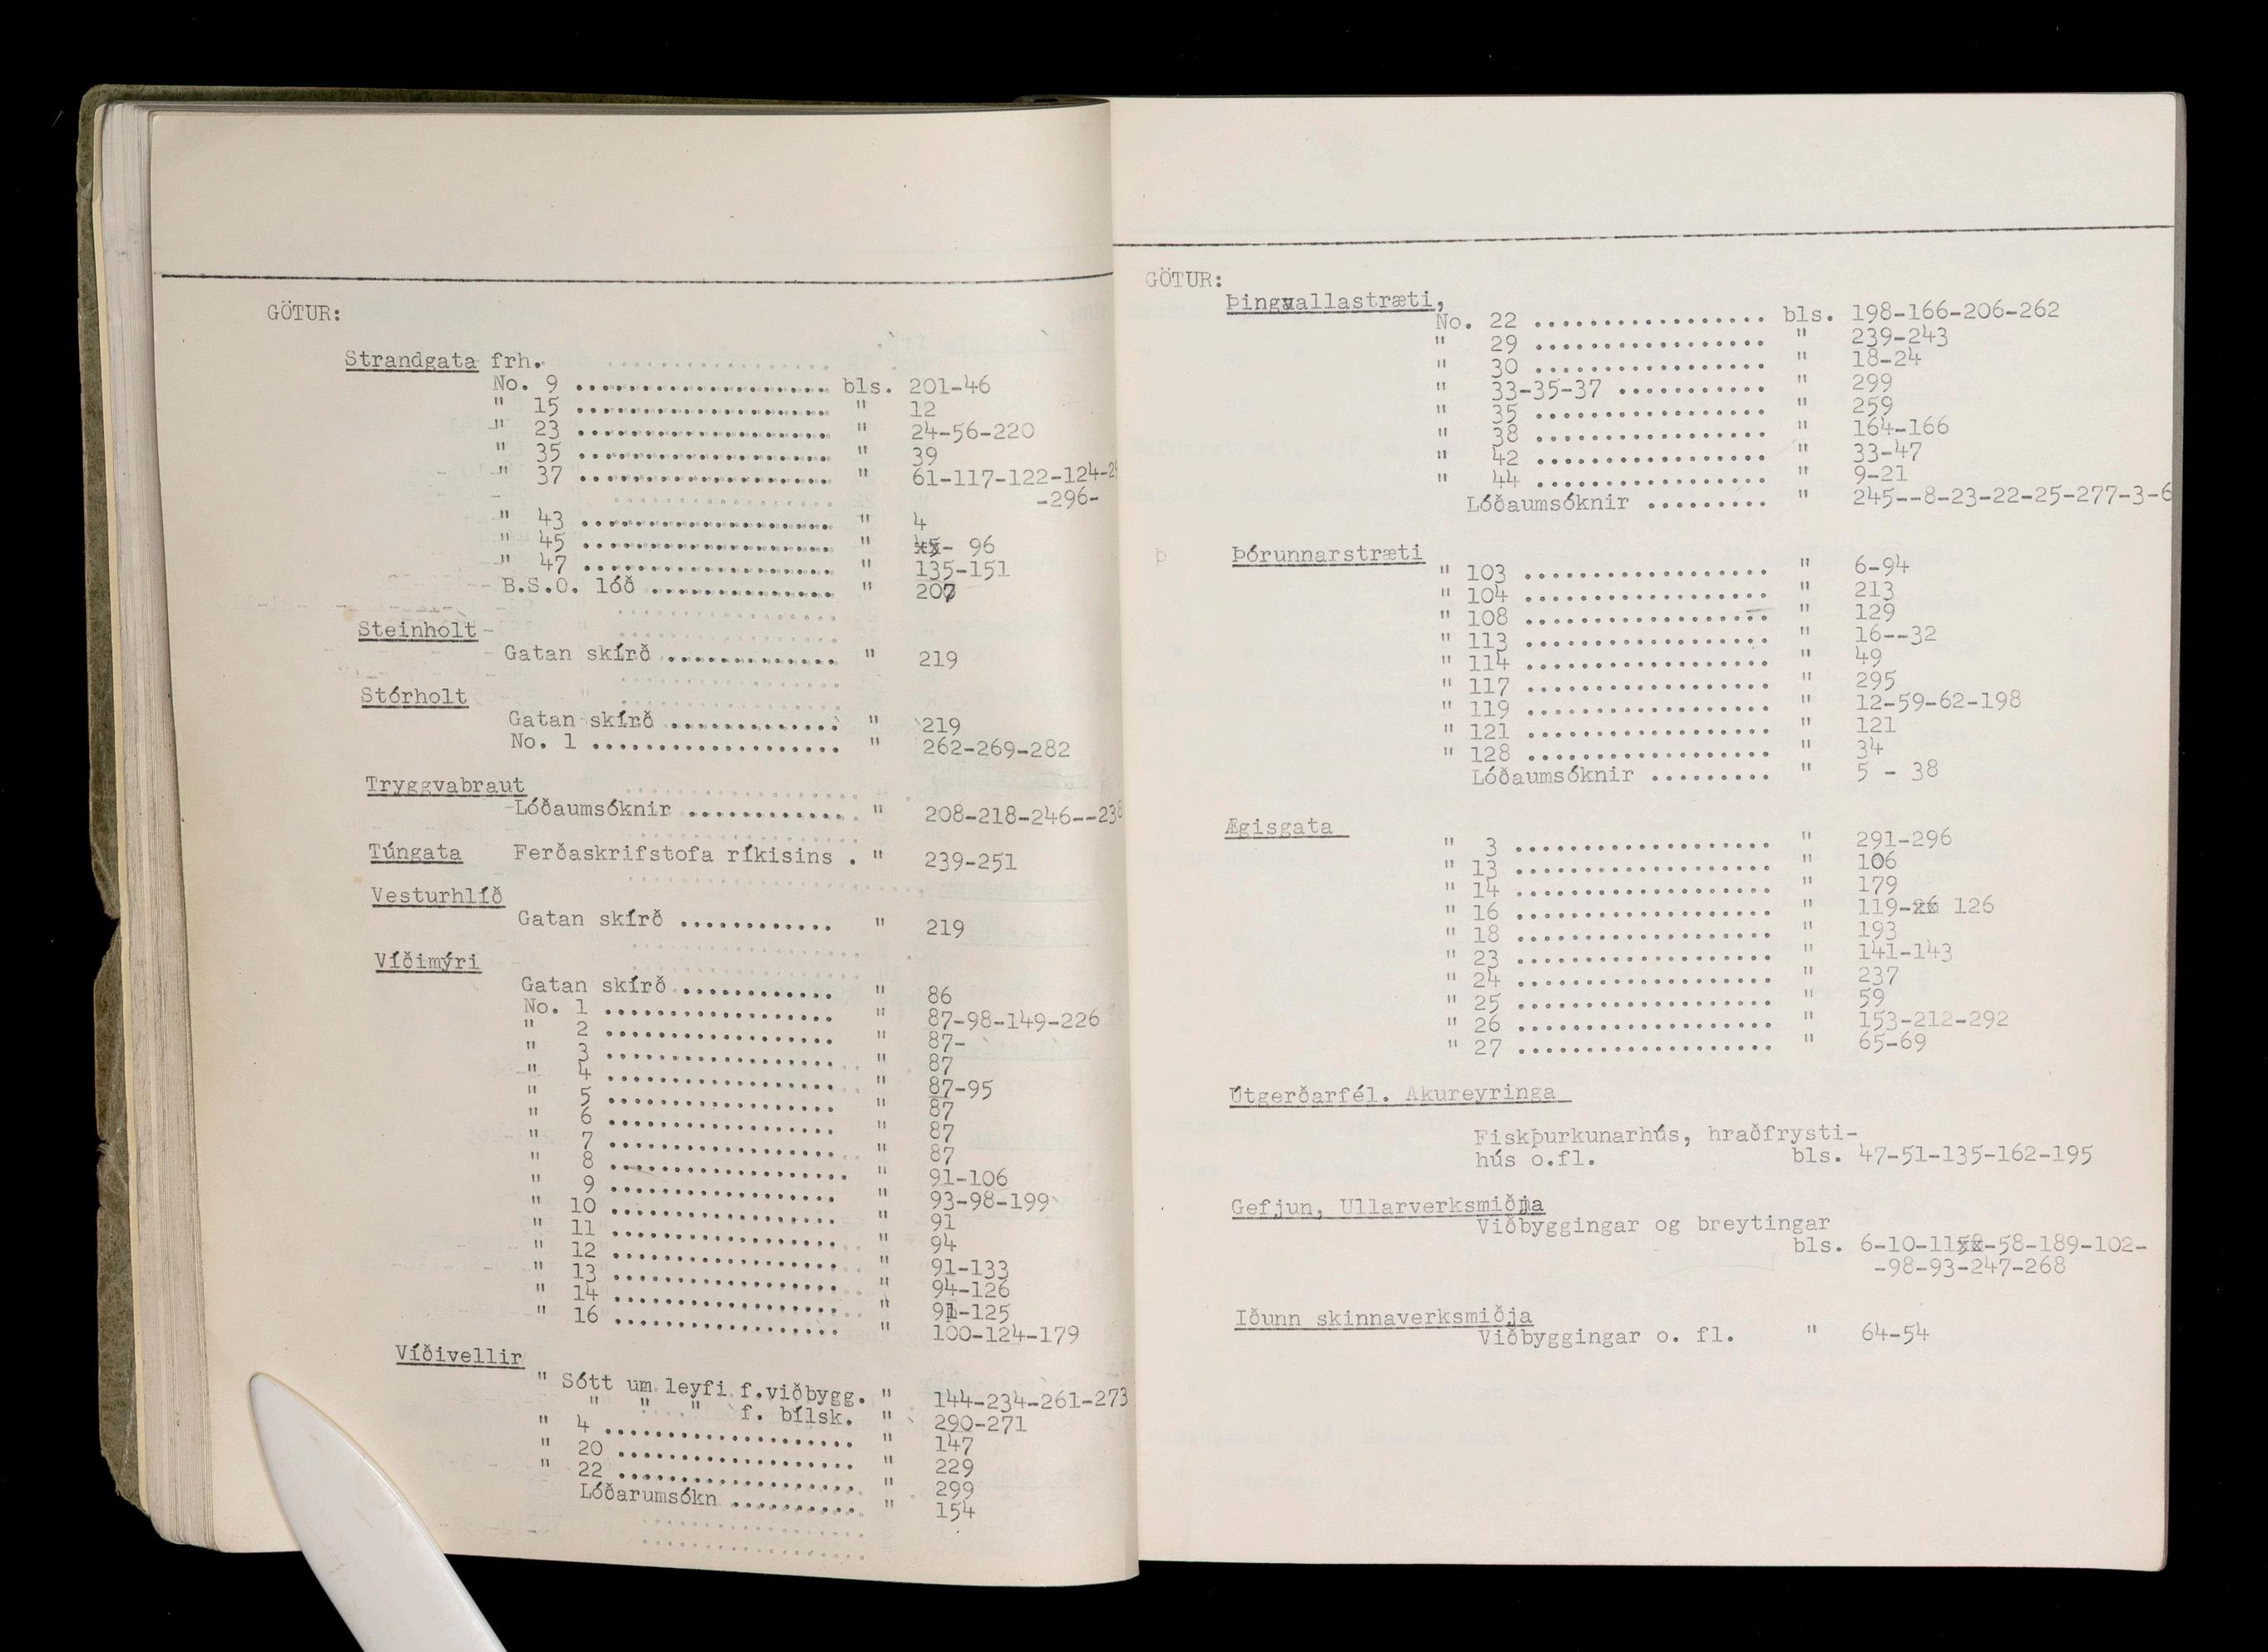 GÖTUR:
Strandgata frh.
No. 9 .................... bls. 201-46
" 15 .................... " 12
" 23 .................... " 24-56-220
" 35 .................... " 39
" 37 .................... " 61-117-122-124-
-296-
" 43 .................... " 4
" 45 .................... " 96
" 47 .................... " 135-151
B.S.O. lóð ............... " 207
Steinholt
Gatan skírð .............. " 219
Stórholt
Gatan skírð ............. " 219
No. 1 ................... " 262-269-282
Tryggvabraut
Lóðaumsóknir ............. " 208-218-246--238
Túngata Ferðaskrifstofa ríkisins . " 239-251
Vesturhlíð
Gatan skírð ............ " 219
Víðimýri
Gatan skírð ............ " 86
No. 1 .................. " 87-98-149-226
" 2 .................. " 87-
" 3 .................. " 87
" 4 .................. " 87-95
" 5 .................. " 87
" 6 .................. " 87
" 7 .................. " 87
" 8 .................. " 91-106
" 9 .................. " 93-98-199
" 10 .................. " 91
" 11 .................. " 94
" 12 .................. " 91-133
" 13 .................. " 94-126
" 14 .................. " 91-125
" 16 .................. " 100-124-179
Víðivellir
" Sótt um leyfi f.viðbygg. " 144-234-261-273
" " " f. bílsk. " 290-271
" 4 ................... " 147
" 20 .................. " 229
" 22 .................. " 299
Lóðarumsókn .......... " 154
GÖTUR:
Þingvallastræti,
No. 22 .................. bls. 198-166-206-262
" 29 .................. " 239-243
" 30 .................. " 18-24
" 33-35-37 ........... " 299
" 35 .................. " 259
" 38 .................. " 164-166
" 42 .................. " 33-47
" 44 .................. " 9-21
Lóðaumsóknir ......... " 245--8-23-22-25-277-3-6
Þórunnarstræti
" 103 .................. " 6-94
" 104 .................. " 213
" 108 .................. " 129
" 113 .................. " 16--32
" 114 .................. " 49
" 117 .................. " 295
" 119 .................. " 12-59-62-198
" 121 .................. " 121
" 128 .................. " 34
Lóðaumsóknir ......... " 5 - 38
Ægisgata
" 3 ................... " 291-296
" 13 ................... " 106
" 14 ................... " 179
" 16 ................... " 119- 126
" 18 ................... " 193
" 23 ................... " 141-143
" 24 ................... " 237
" 25 ................... " 59
" 26 ................... " 153-212-292
" 27 ................... " 65-69
Útgerðarfél. Akureyringa
Fiskþurkunarhús, hraðfrysti-
hús o.fl. bls. 47-51-135-162-195
Gefjun, Ullarverksmiðja
Viðbyggingar og breytingar
bls. 6-10-11-58-189-102-
-98-93-247-268
Iðunn skinnaverksmiðja
Viðbyggingar o. fl. " 64-54